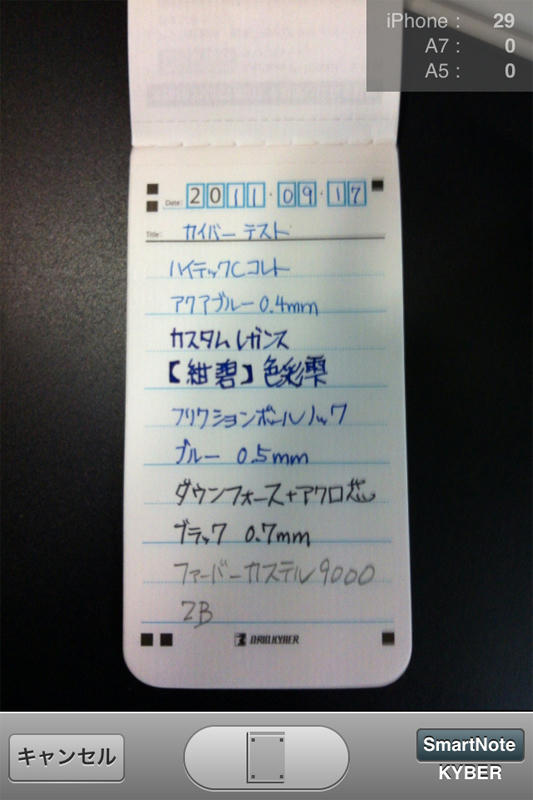 iPhone : 29
A7 : 0
A5 : 0
Date: 2011.09.17
Title: カイバー テスト
ハイテックCコレト
アクアブルー 0.4mm
カスタムレガンス
【紺碧】色彩雫
フリクションボールノック
ブルー 0.5mm
ダウンフォース+アクロ芯
ブラック 0.7mm
ファーバーカステル9000
2B
KYBER
キャンセル
SmartNote
KYBER